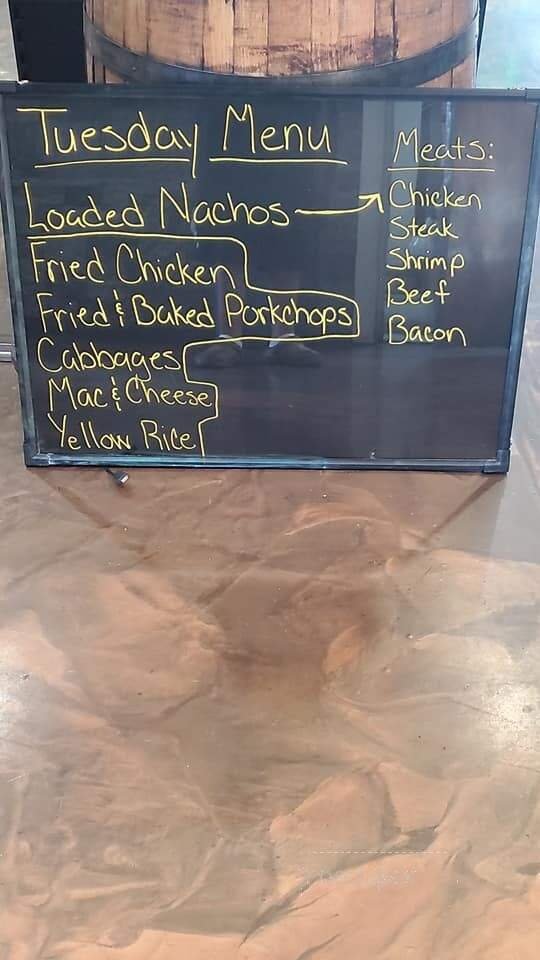 Tuesday Menu
Loaded Nachos
Fried Chicken
Fried & Baked Porkchops
Cabbages
Mac & Cheese
Yellow Rice
Meats:
Chicken
Steak
Shrimp
Beef
Bacon